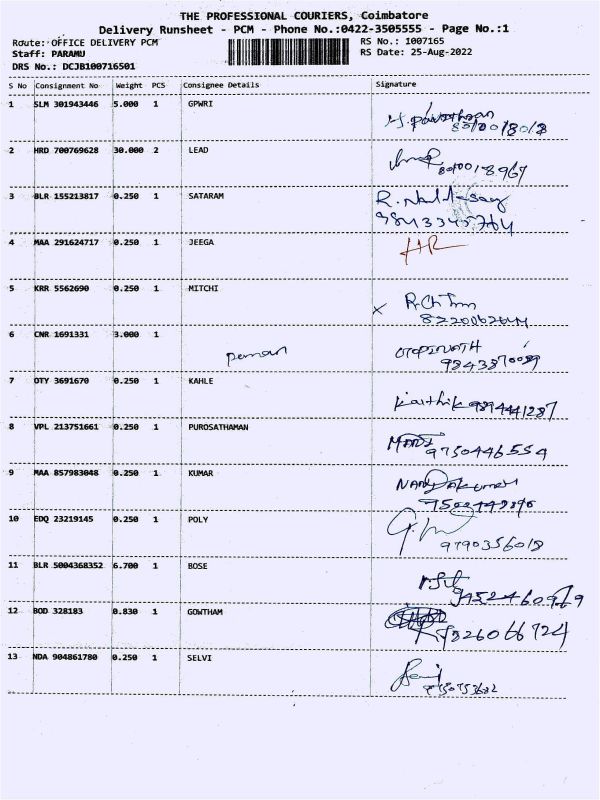 THE PROFESSIONAL COURIERS, Coimbatore
Delivery Runsheet - PCM - Phone No.:0422-3505555 - Page No.:1
Route: OFFICE DELIVERY PCM
Staff: PARAMU
DRS No.: DCJB100716501
RS No.: 1007165
RS Date: 25-Aug-2022
S No Consignment No Weight PCS Consignee Details Signature
1 SLM 301943446 5.000 1 GPWRI
2 HRD 700769628 30.000 2 LEAD
3 BLR 155213817 0.250 1 SATARAM
4 MAA 291624717 0.250 1 JEEGA HR
5 KRR 5562690 0.250 1 MITCHI
6 CNR 1691331 3.000 1
7 OTY 3691670 0.250 1 KAHLE Karthik 9894441287
8 VPL 213751661 0.250 1 PUROSATHAMAN
9750446554
9 MAA 857983048 0.250 1 KUMAR NANDAKUMAR
10 EDQ 23219145 0.250 1 POLY
9790356018
11 BLR 5004368352 6.700 1 BOSE
9452460969
12 BOD 328183 0.830 1 GOWTHAM
13 NDA 904861780 0.250 1 SELVI